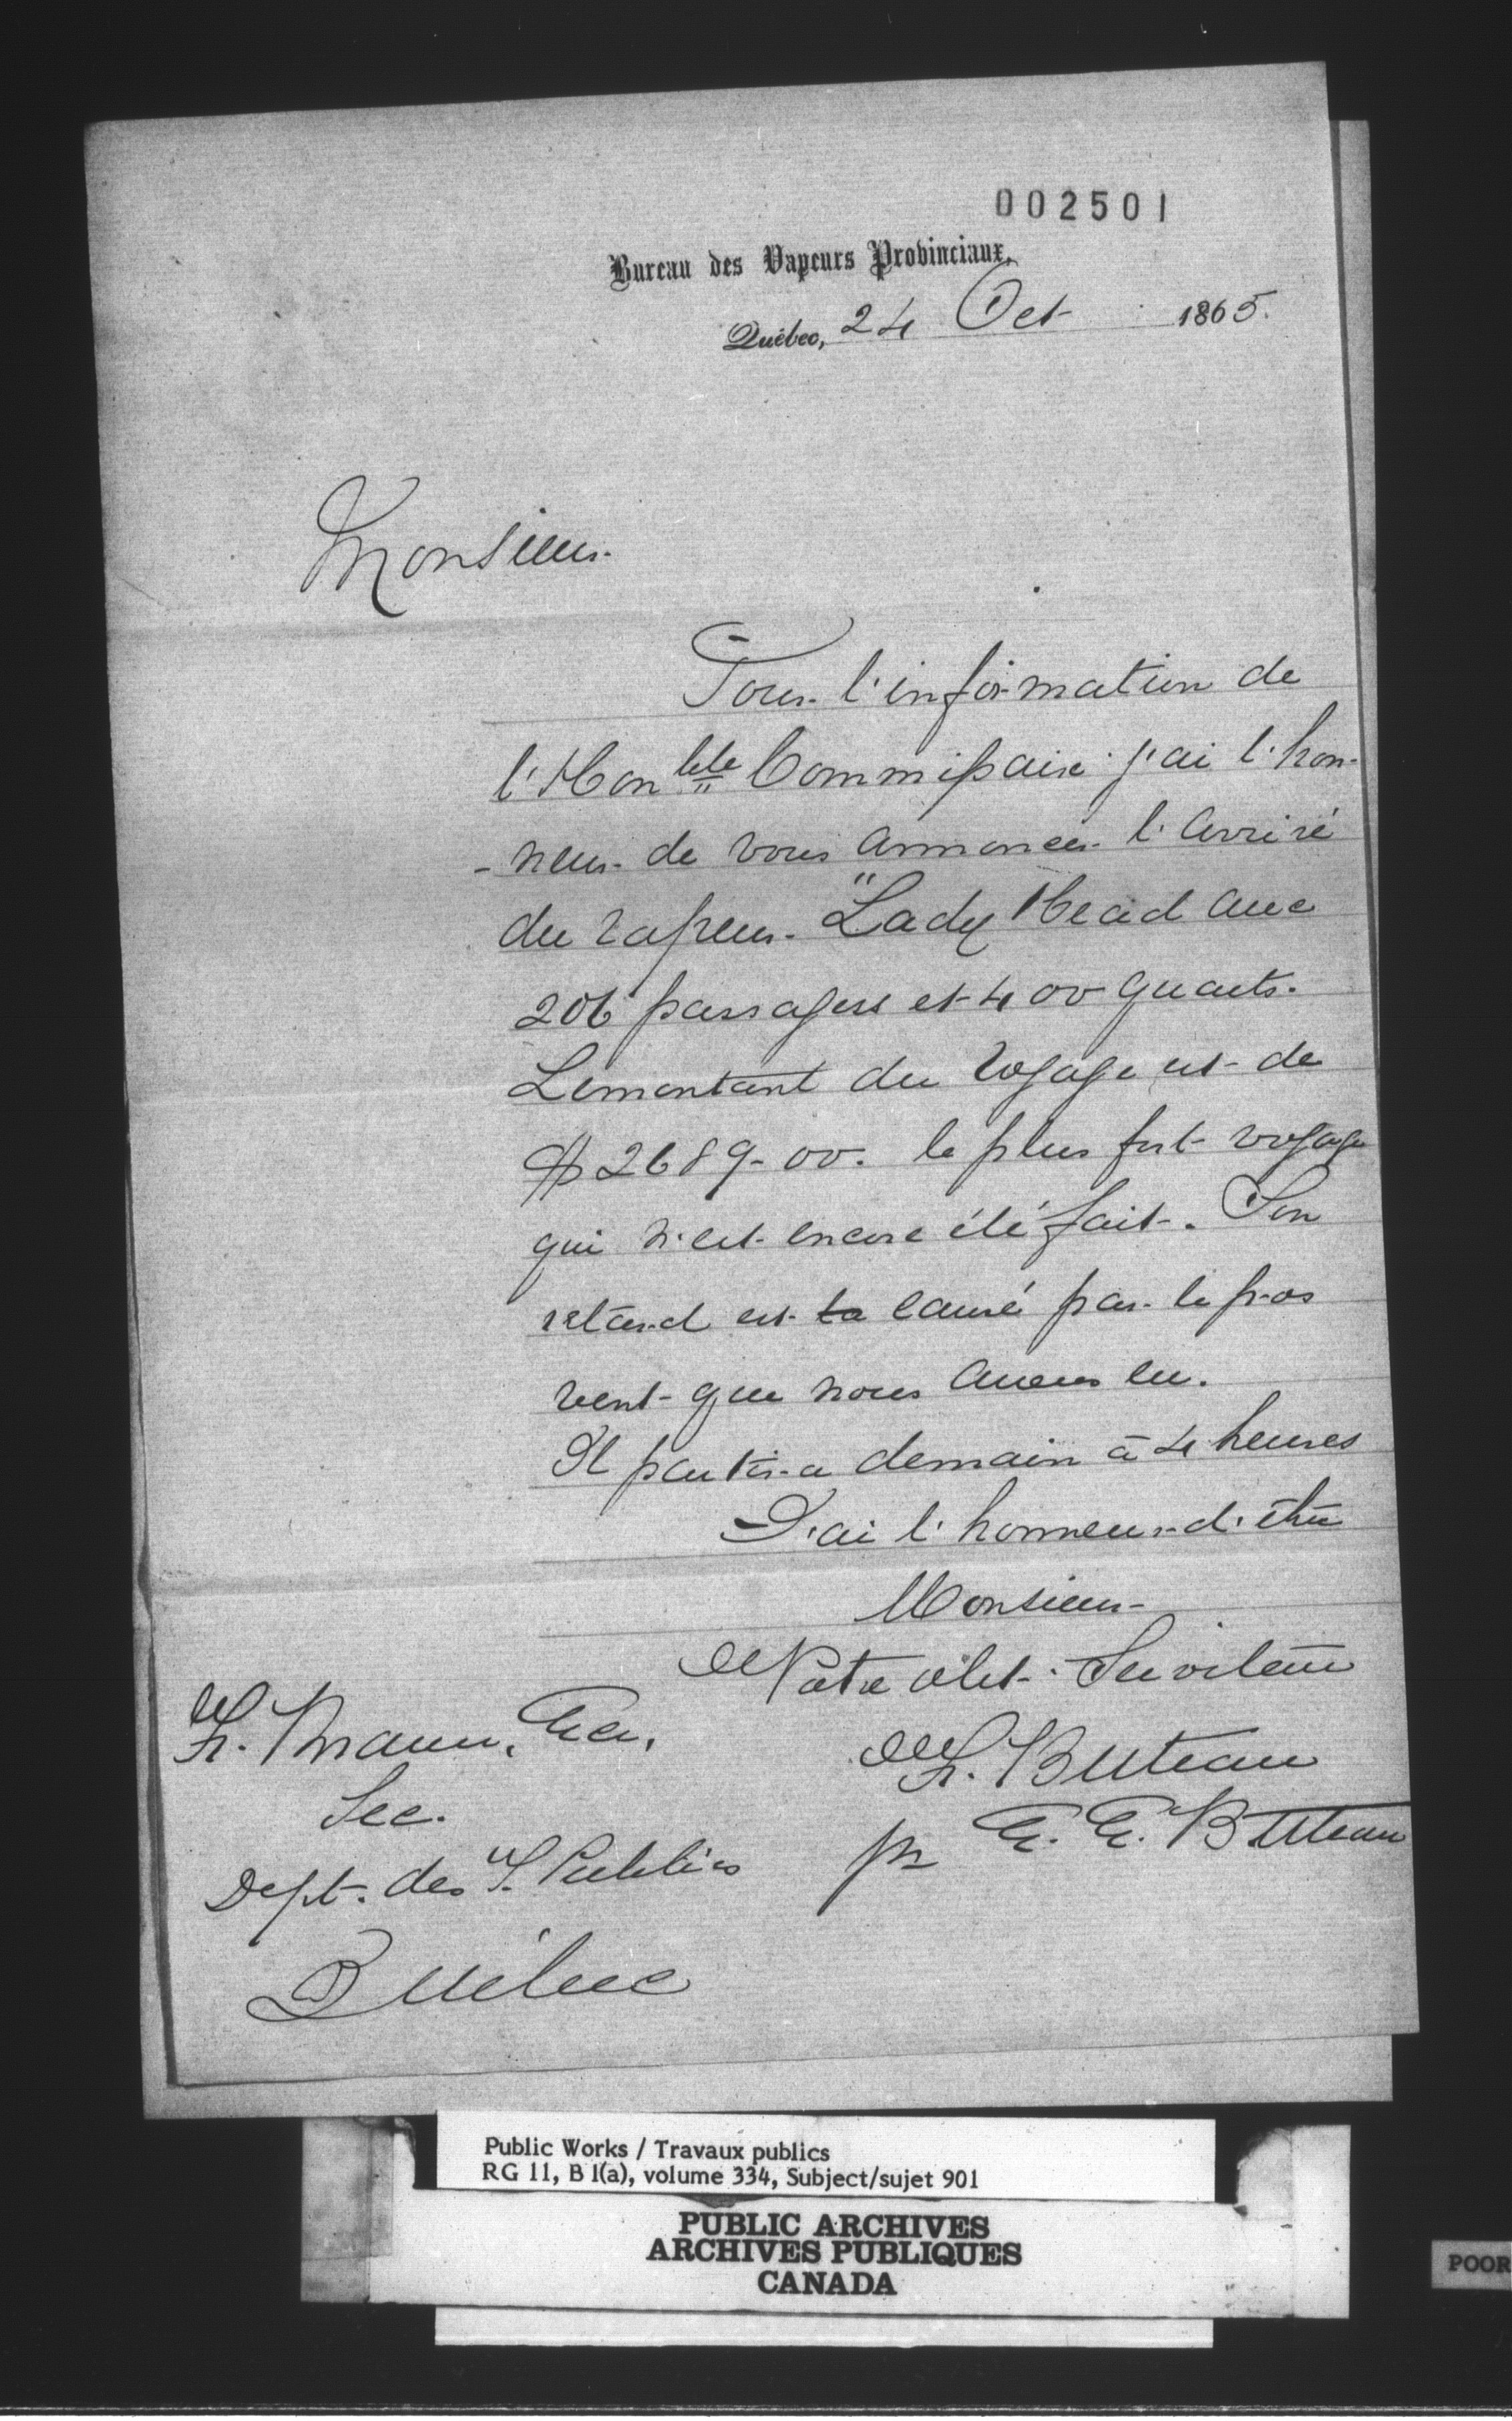 002501
Bureau des Vapeurs Provinciaux,
Québec, 24 Oct 1865.
Monsieur
Pour l'information de
l'Honble Commissaire j'ai l'hon-
-neur de vous annoncer l'arrivé
du vapeur "Lady Head avec
206 passagers et 400 quarts.
Le montant du voyage est de
$2689-00. le plus fort voyage
qui n'est encore été fait. Son
retard est la causé par le gros
vent que nous avons eu.
Il partira demain à 4 heures
J'ai l'honneur d'être
Monsieur
Votre obt. Serviteur
F. Buteau
pr G. G. Buteau
F. Braun, Ecr.
Sec.
Dept. des T. Publics
Québec
Public Works / Travaux publics
RG 11, B 1(a), volume 334, Subject/sujet 901
PUBLIC ARCHIVES
ARCHIVES PUBLIQUES
CANADA
POOR